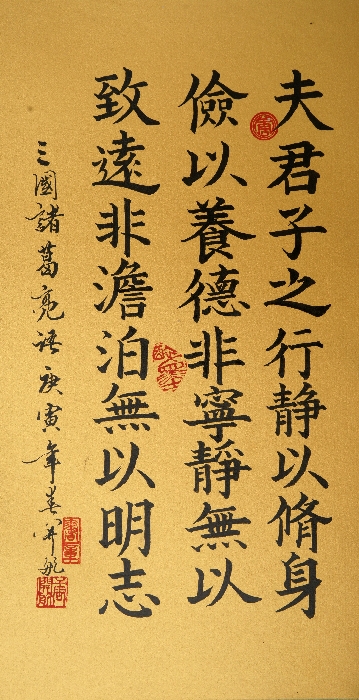 夫君子之行静以脩身
儉以養德非寧靜無以
致遠非澹泊無以明志
三國諸葛亮語庚寅年春